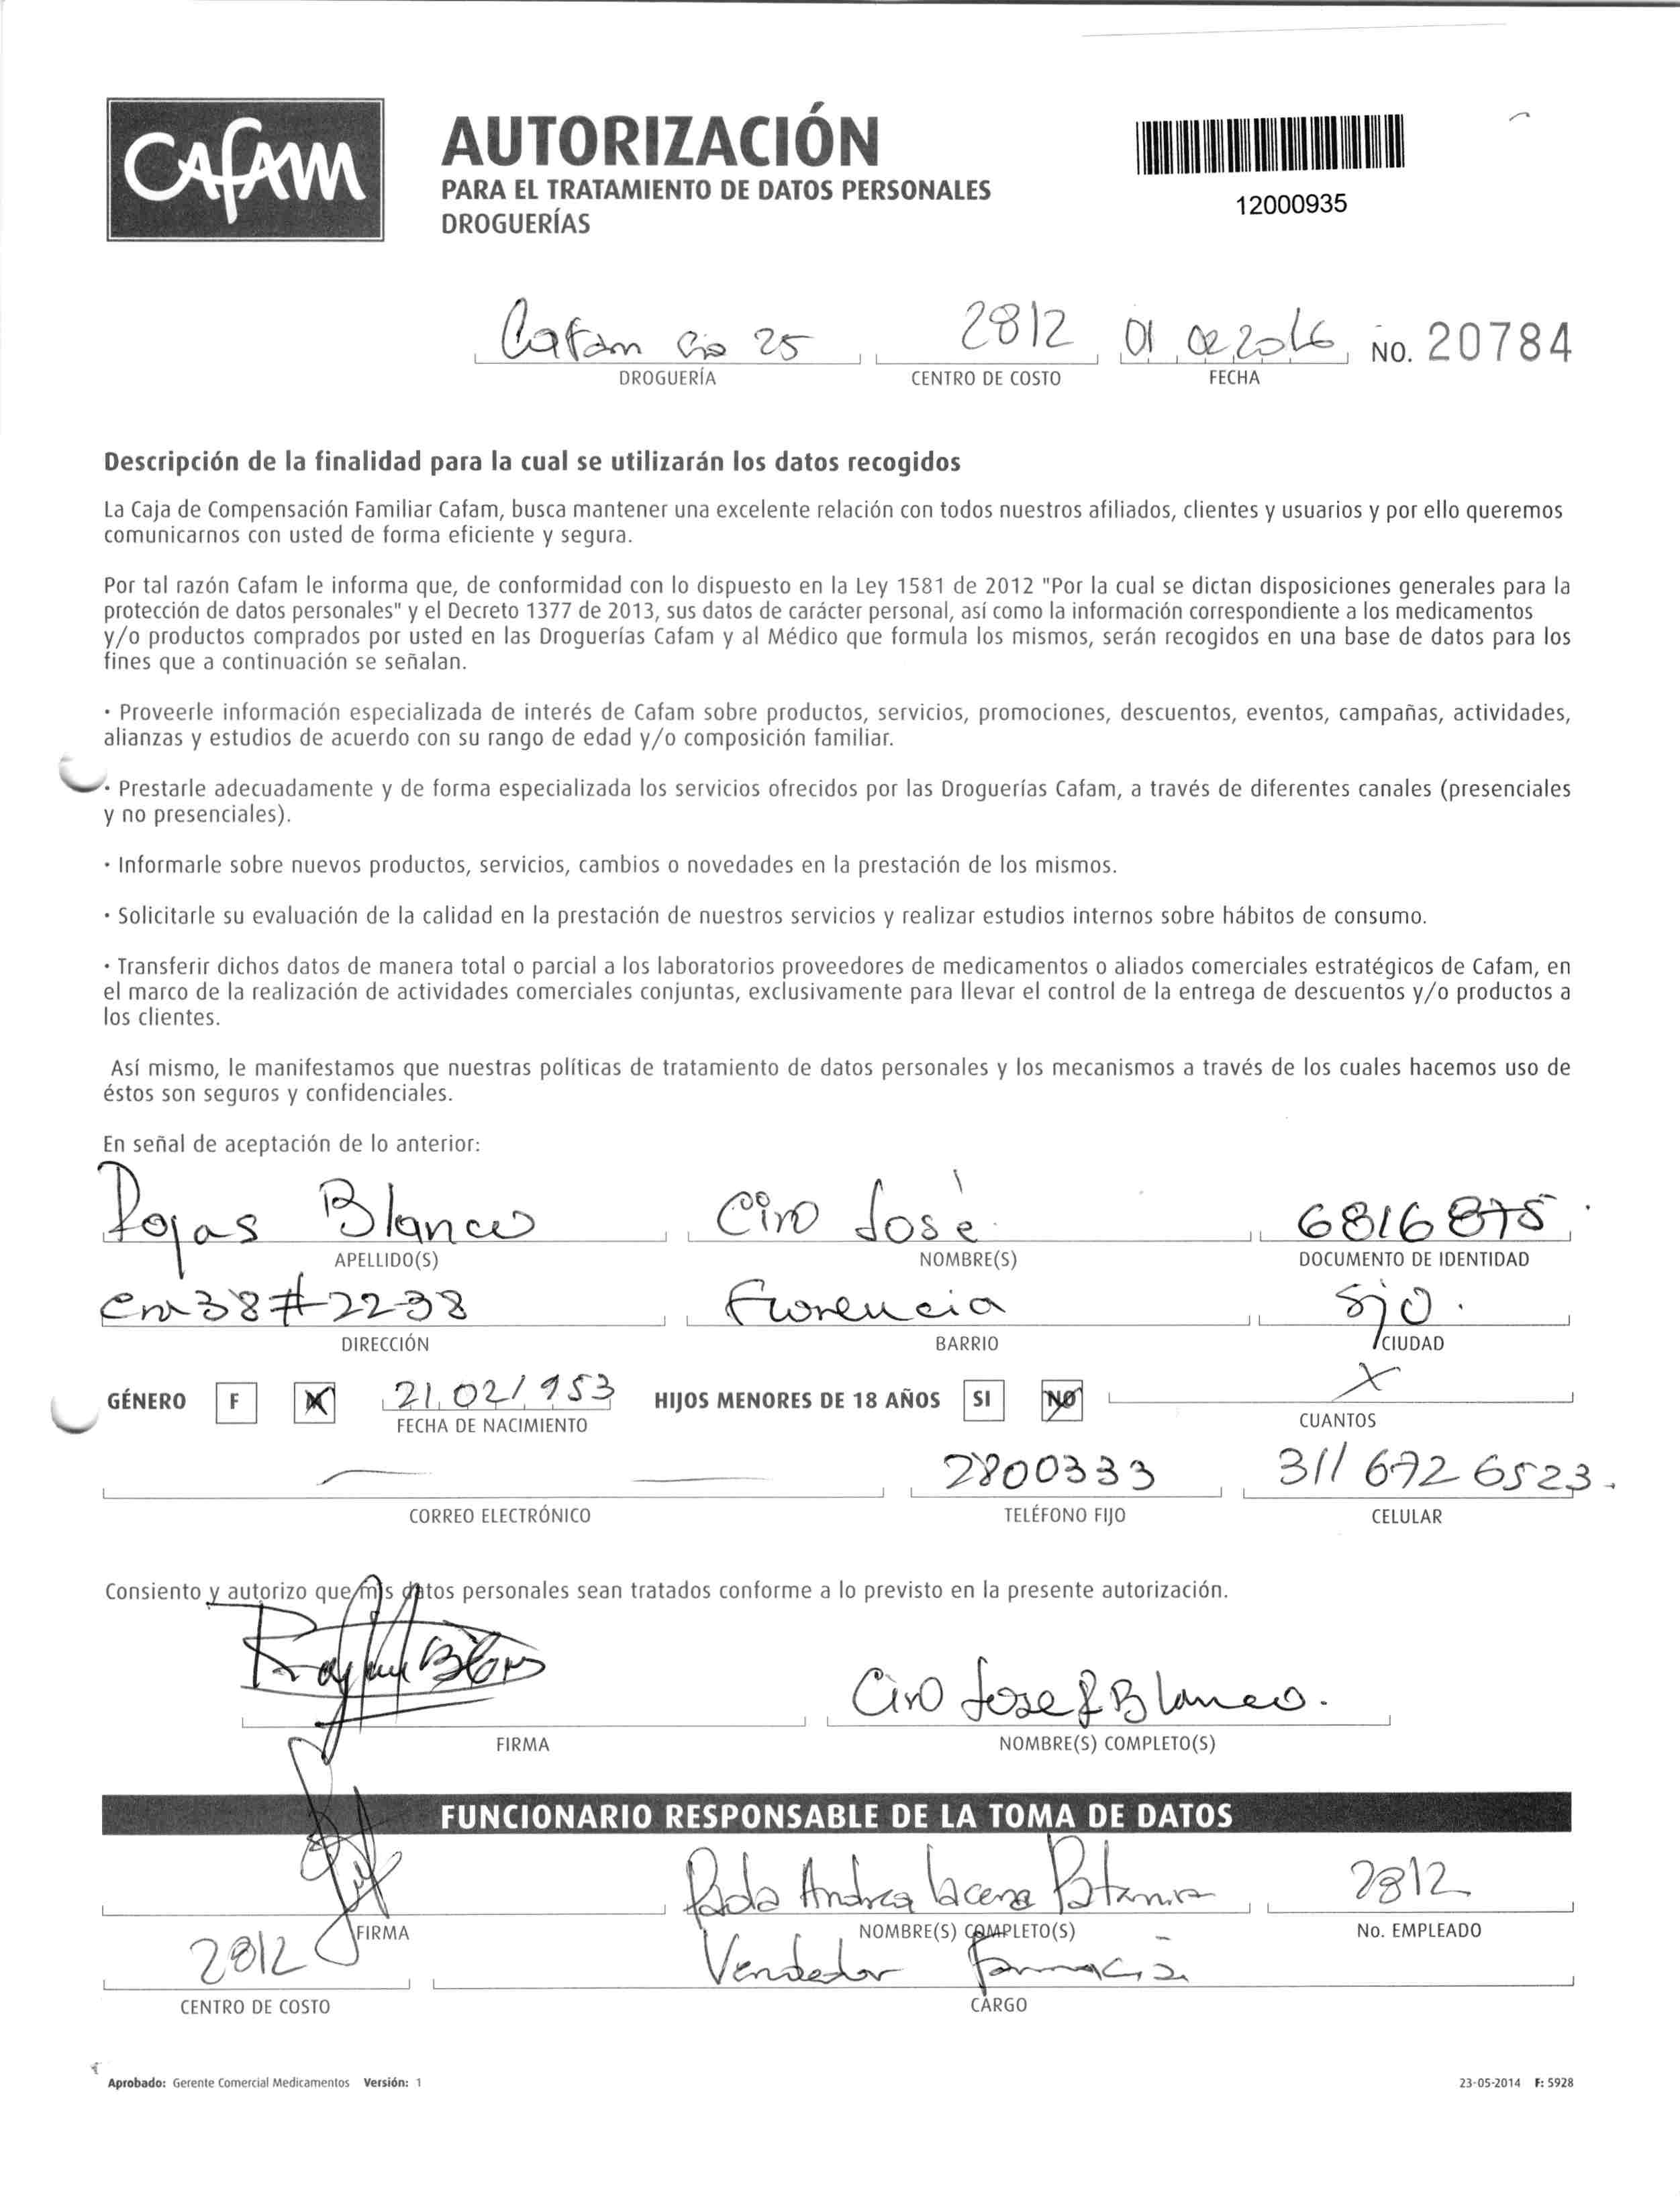 Cafam
AUTORIZACIÓN
PARA EL TRATAMIENTO DE DATOS PERSONALES
DROGUERÍAS
12000935
Cafam 25 2812 01 02 2016 No. 20784
DROGUERÍA CENTRO DE COSTO FECHA
Descripción de la finalidad para la cual se utilizarán los datos recogidos
La Caja de Compensación Familiar Cafam, busca mantener una excelente relación con todos nuestros afiliados, clientes y usuarios y por ello queremos
comunicarnos con usted de forma eficiente y segura.
Por tal razón Cafam le informa que, de conformidad con lo dispuesto en la Ley 1581 de 2012 "Por la cual se dictan disposiciones generales para la
protección de datos personales" y el Decreto 1377 de 2013, sus datos de carácter personal, así como la información correspondiente a los medicamentos
y/o productos comprados por usted en las Droguerías Cafam y al Médico que formula los mismos, serán recogidos en una base de datos para los
fines que a continuación se señalan.
· Proveerle información especializada de interés de Cafam sobre productos, servicios, promociones, descuentos, eventos, campañas, actividades,
alianzas y estudios de acuerdo con su rango de edad y/o composición familiar.
· Prestarle adecuadamente y de forma especializada los servicios ofrecidos por las Droguerías Cafam, a través de diferentes canales (presenciales
y no presenciales).
· Informarle sobre nuevos productos, servicios, cambios o novedades en la prestación de los mismos.
· Solicitarle su evaluación de la calidad en la prestación de nuestros servicios y realizar estudios internos sobre hábitos de consumo.
· Transferir dichos datos de manera total o parcial a los laboratorios proveedores de medicamentos o aliados comerciales estratégicos de Cafam, en
el marco de la realización de actividades comerciales conjuntas, exclusivamente para llevar el control de la entrega de descuentos y/o productos a
los clientes.
Así mismo, le manifestamos que nuestras políticas de tratamiento de datos personales y los mecanismos a través de los cuales hacemos uso de
éstos son seguros y confidenciales.
En señal de aceptación de lo anterior:
Rojas Blanco Ciro José 6816875
APELLIDO(S) NOMBRE(S) DOCUMENTO DE IDENTIDAD
Cra 38 # 22-38 Florencia Sjo.
DIRECCIÓN BARRIO CIUDAD
GÉNERO F M 21 02/1953 HIJOS MENORES DE 18 AÑOS SI NO X
FECHA DE NACIMIENTO CUANTOS
2800333 311 672 6523.
CORREO ELECTRÓNICO TELÉFONO FIJO CELULAR
Consiento y autorizo que mis datos personales sean tratados conforme a lo previsto en la presente autorización.
Ciro Jose R Blanco.
FIRMA NOMBRE(S) COMPLETO(S)
FUNCIONARIO RESPONSABLE DE LA TOMA DE DATOS
Andrea 2812
FIRMA NOMBRE(S) COMPLETO(S) No. EMPLEADO
2812 Vendedor Farmacia
CENTRO DE COSTO CARGO
Aprobado: Gerente Comercial Medicamentos Versión: 1 23-05-2014 F: 5928